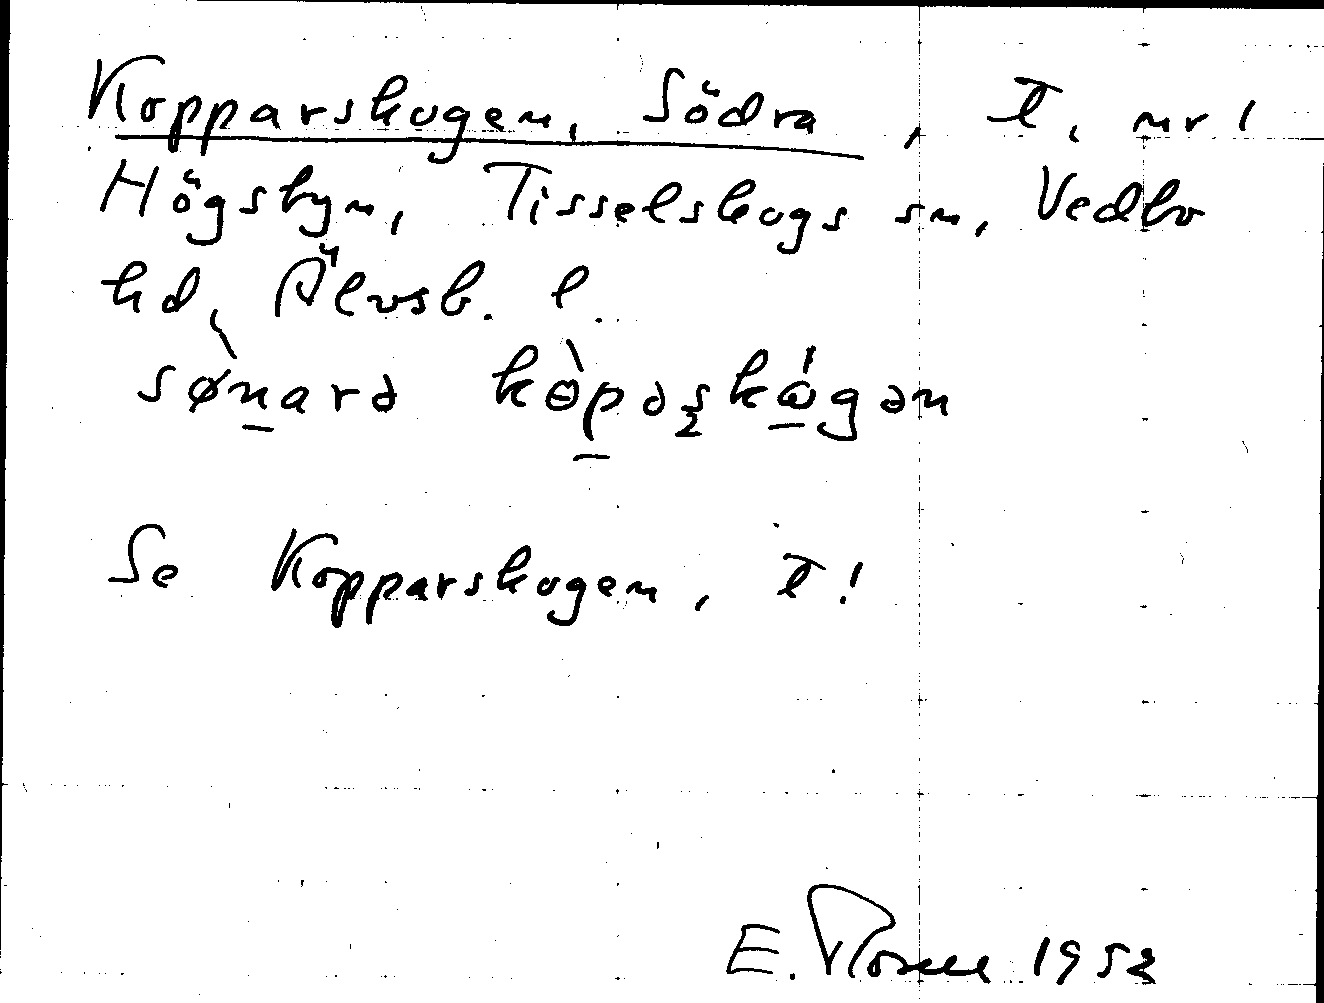 Kopparskogen, Södra, T, nr 1
Högsbyn, Tisselskogs sn, Vedbo
hd, Älvsb. l.
sønarə köpəsskågən
Se Kopparskogen, T!
E. 1952